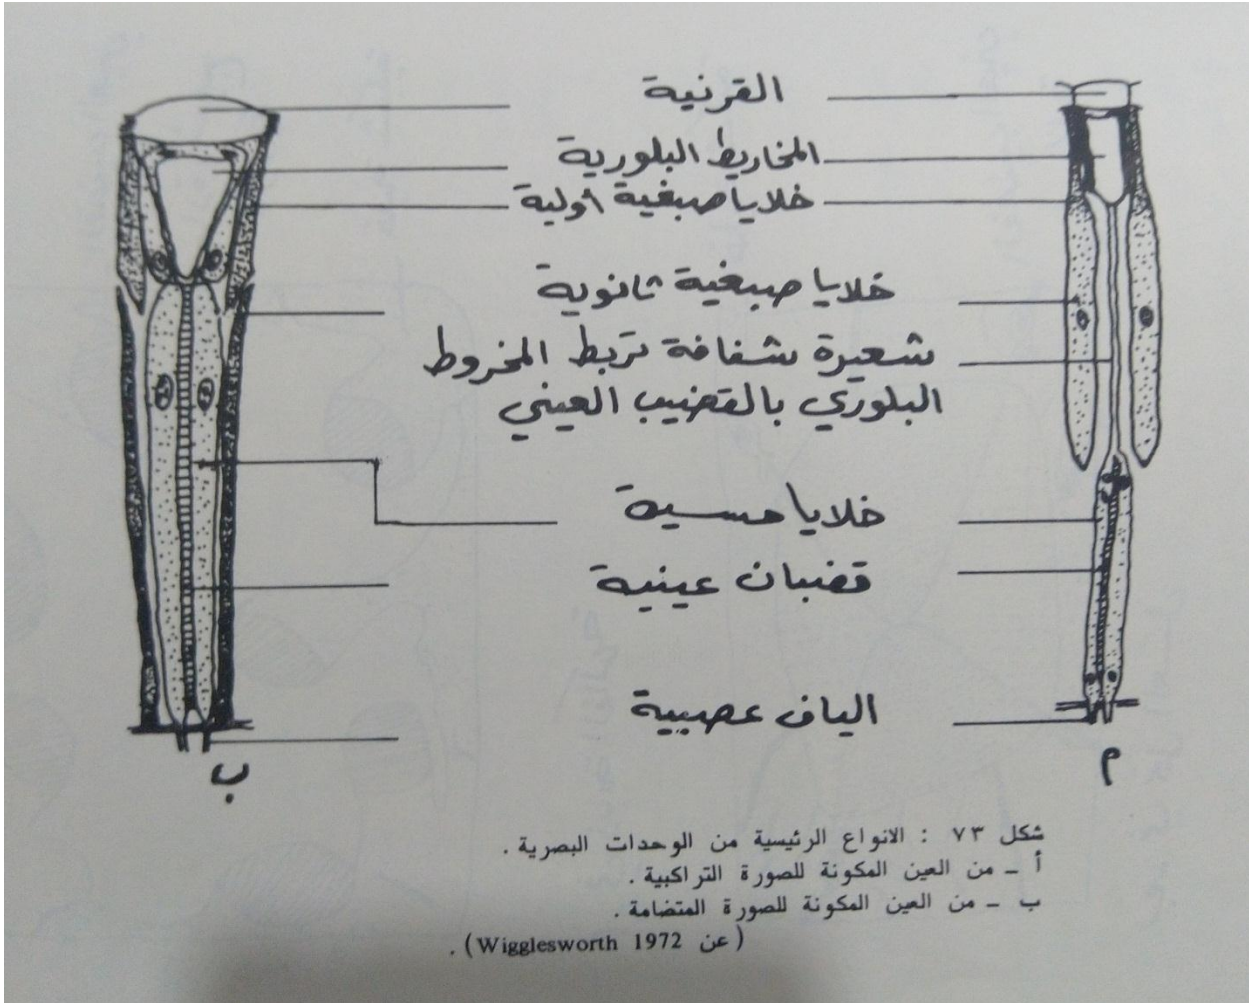 القرنية
المخاريط البلورية
خلايا صبغية أولية
خلايا صبغية ثانوية
شعيرة شفافة تربط المخروط
البلوري بالقضيب العيني
خلايا حسية
قضبان عينية
الياف عصبية
أ
ب
شكل ٧٣ : الانواع الرئيسية من الوحدات البصرية .
أ ـ من العين المكونة للصورة التراكبية .
ب ـ من العين المكونة للصورة المتضامة .
(عن Wigglesworth 1972) .